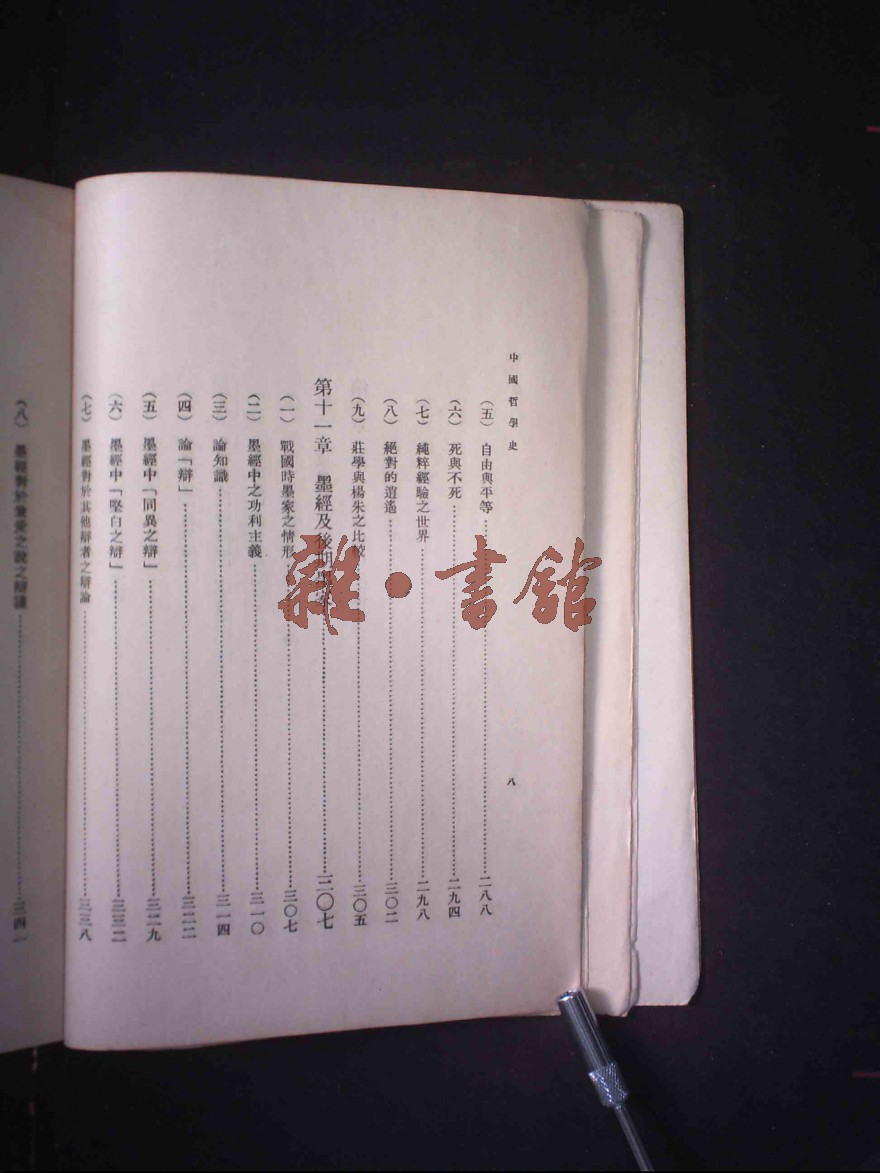 中國哲學史
八
(五) 自由與平等……二八八
(六) 死與不死……二九四
(七) 純粹經驗之世界……二九八
(八) 絕對的逍遙……三〇二
(九) 莊學與楊朱之比較……三〇五
第十一章 墨經及後期……三〇七
(一) 戰國時墨家之情形……三〇七
(二) 墨經中之功利主義……三一〇
(三) 論知識……三一四
(四) 論「辯」……三二二
(五) 墨經中「同異之辯」……三二九
(六) 墨經中「堅白之辯」……三三二
(七) 墨經對於其他辯者之辯論……三三八
(八) 墨經對於兼愛之說之辯護……三四一
雜・書館